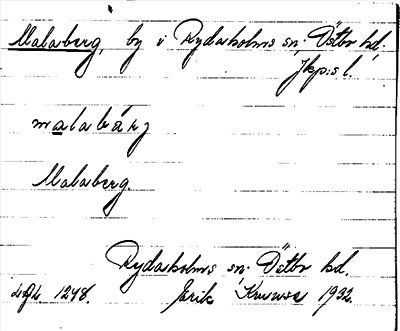 Malaberg, by i Rydaholms sn, Östbo hd,
Jkp:s l.
malabärj
Malaberg.
Rydaholms sn, Östbo hd.
1248. Erik 1932.